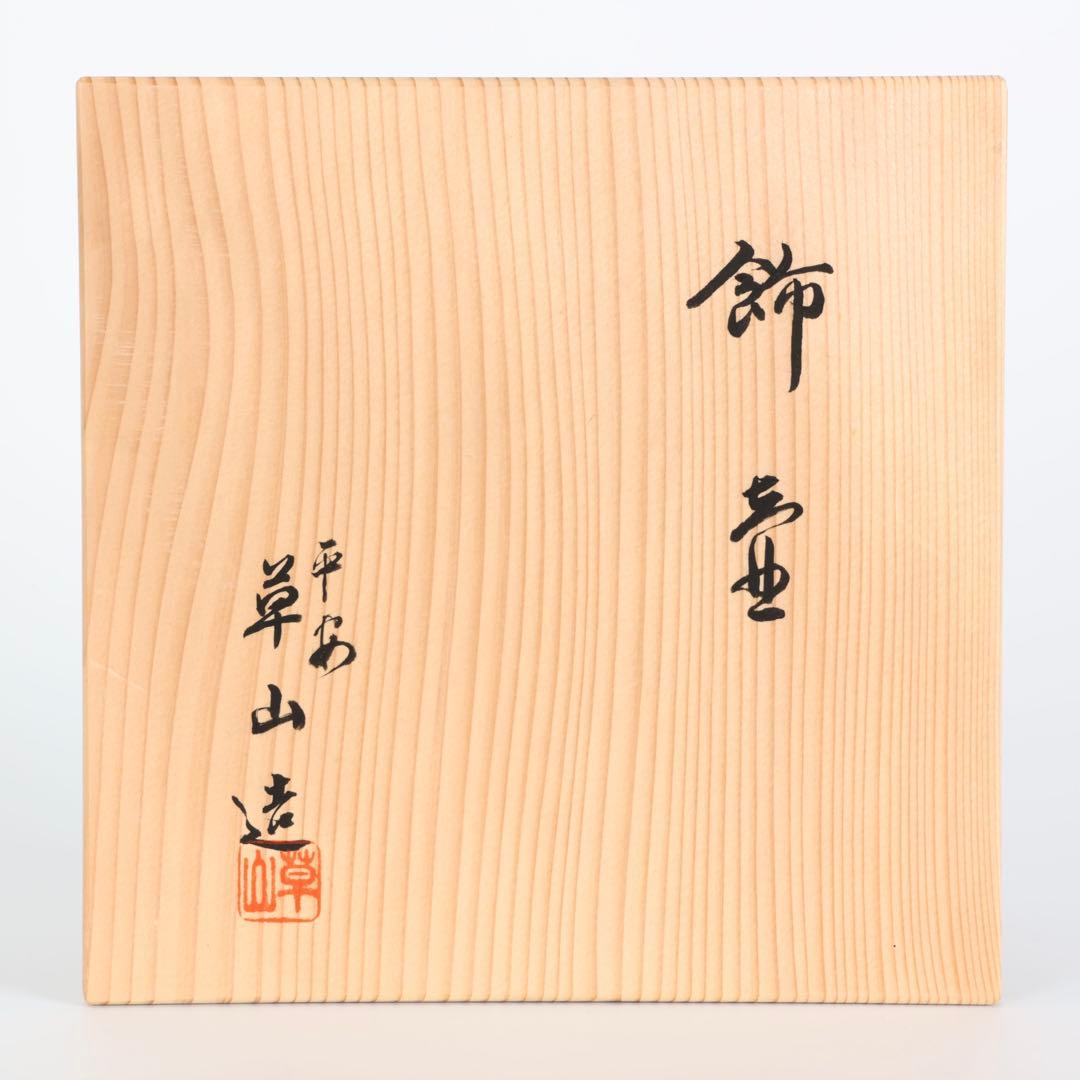 飾壷
平安
草山造
草山